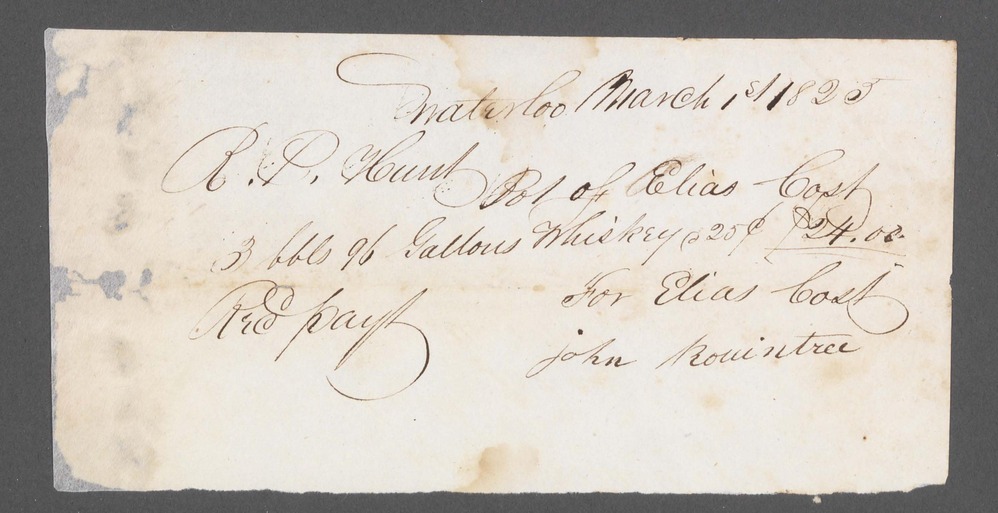 Waterloo March 1st 1825
R. P. Hunt Bot of Elias Cost
3 bbls 96 Gallons Whiskey @ 25¢ $24.00
Recd payt For Elias Cost
john Rouintree